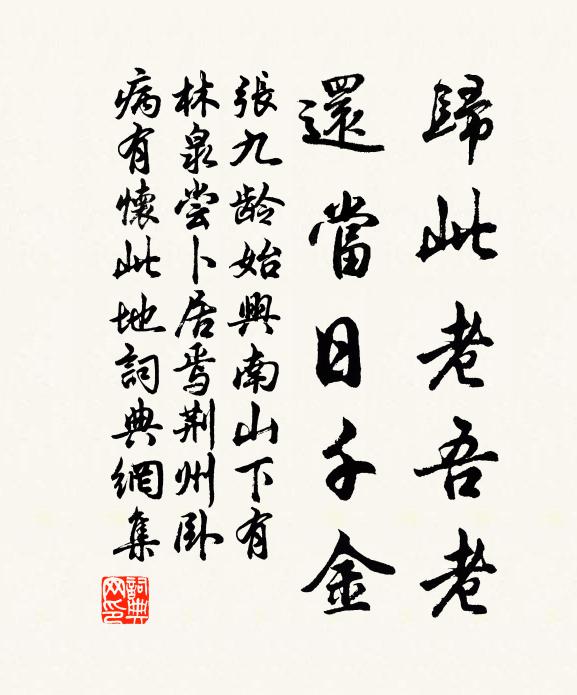 歸此老吾老
還當日千金
張九龄始興南山下有
林泉嘗卜居焉荆州卧
病有懷此地詞典網集
詞典
网印